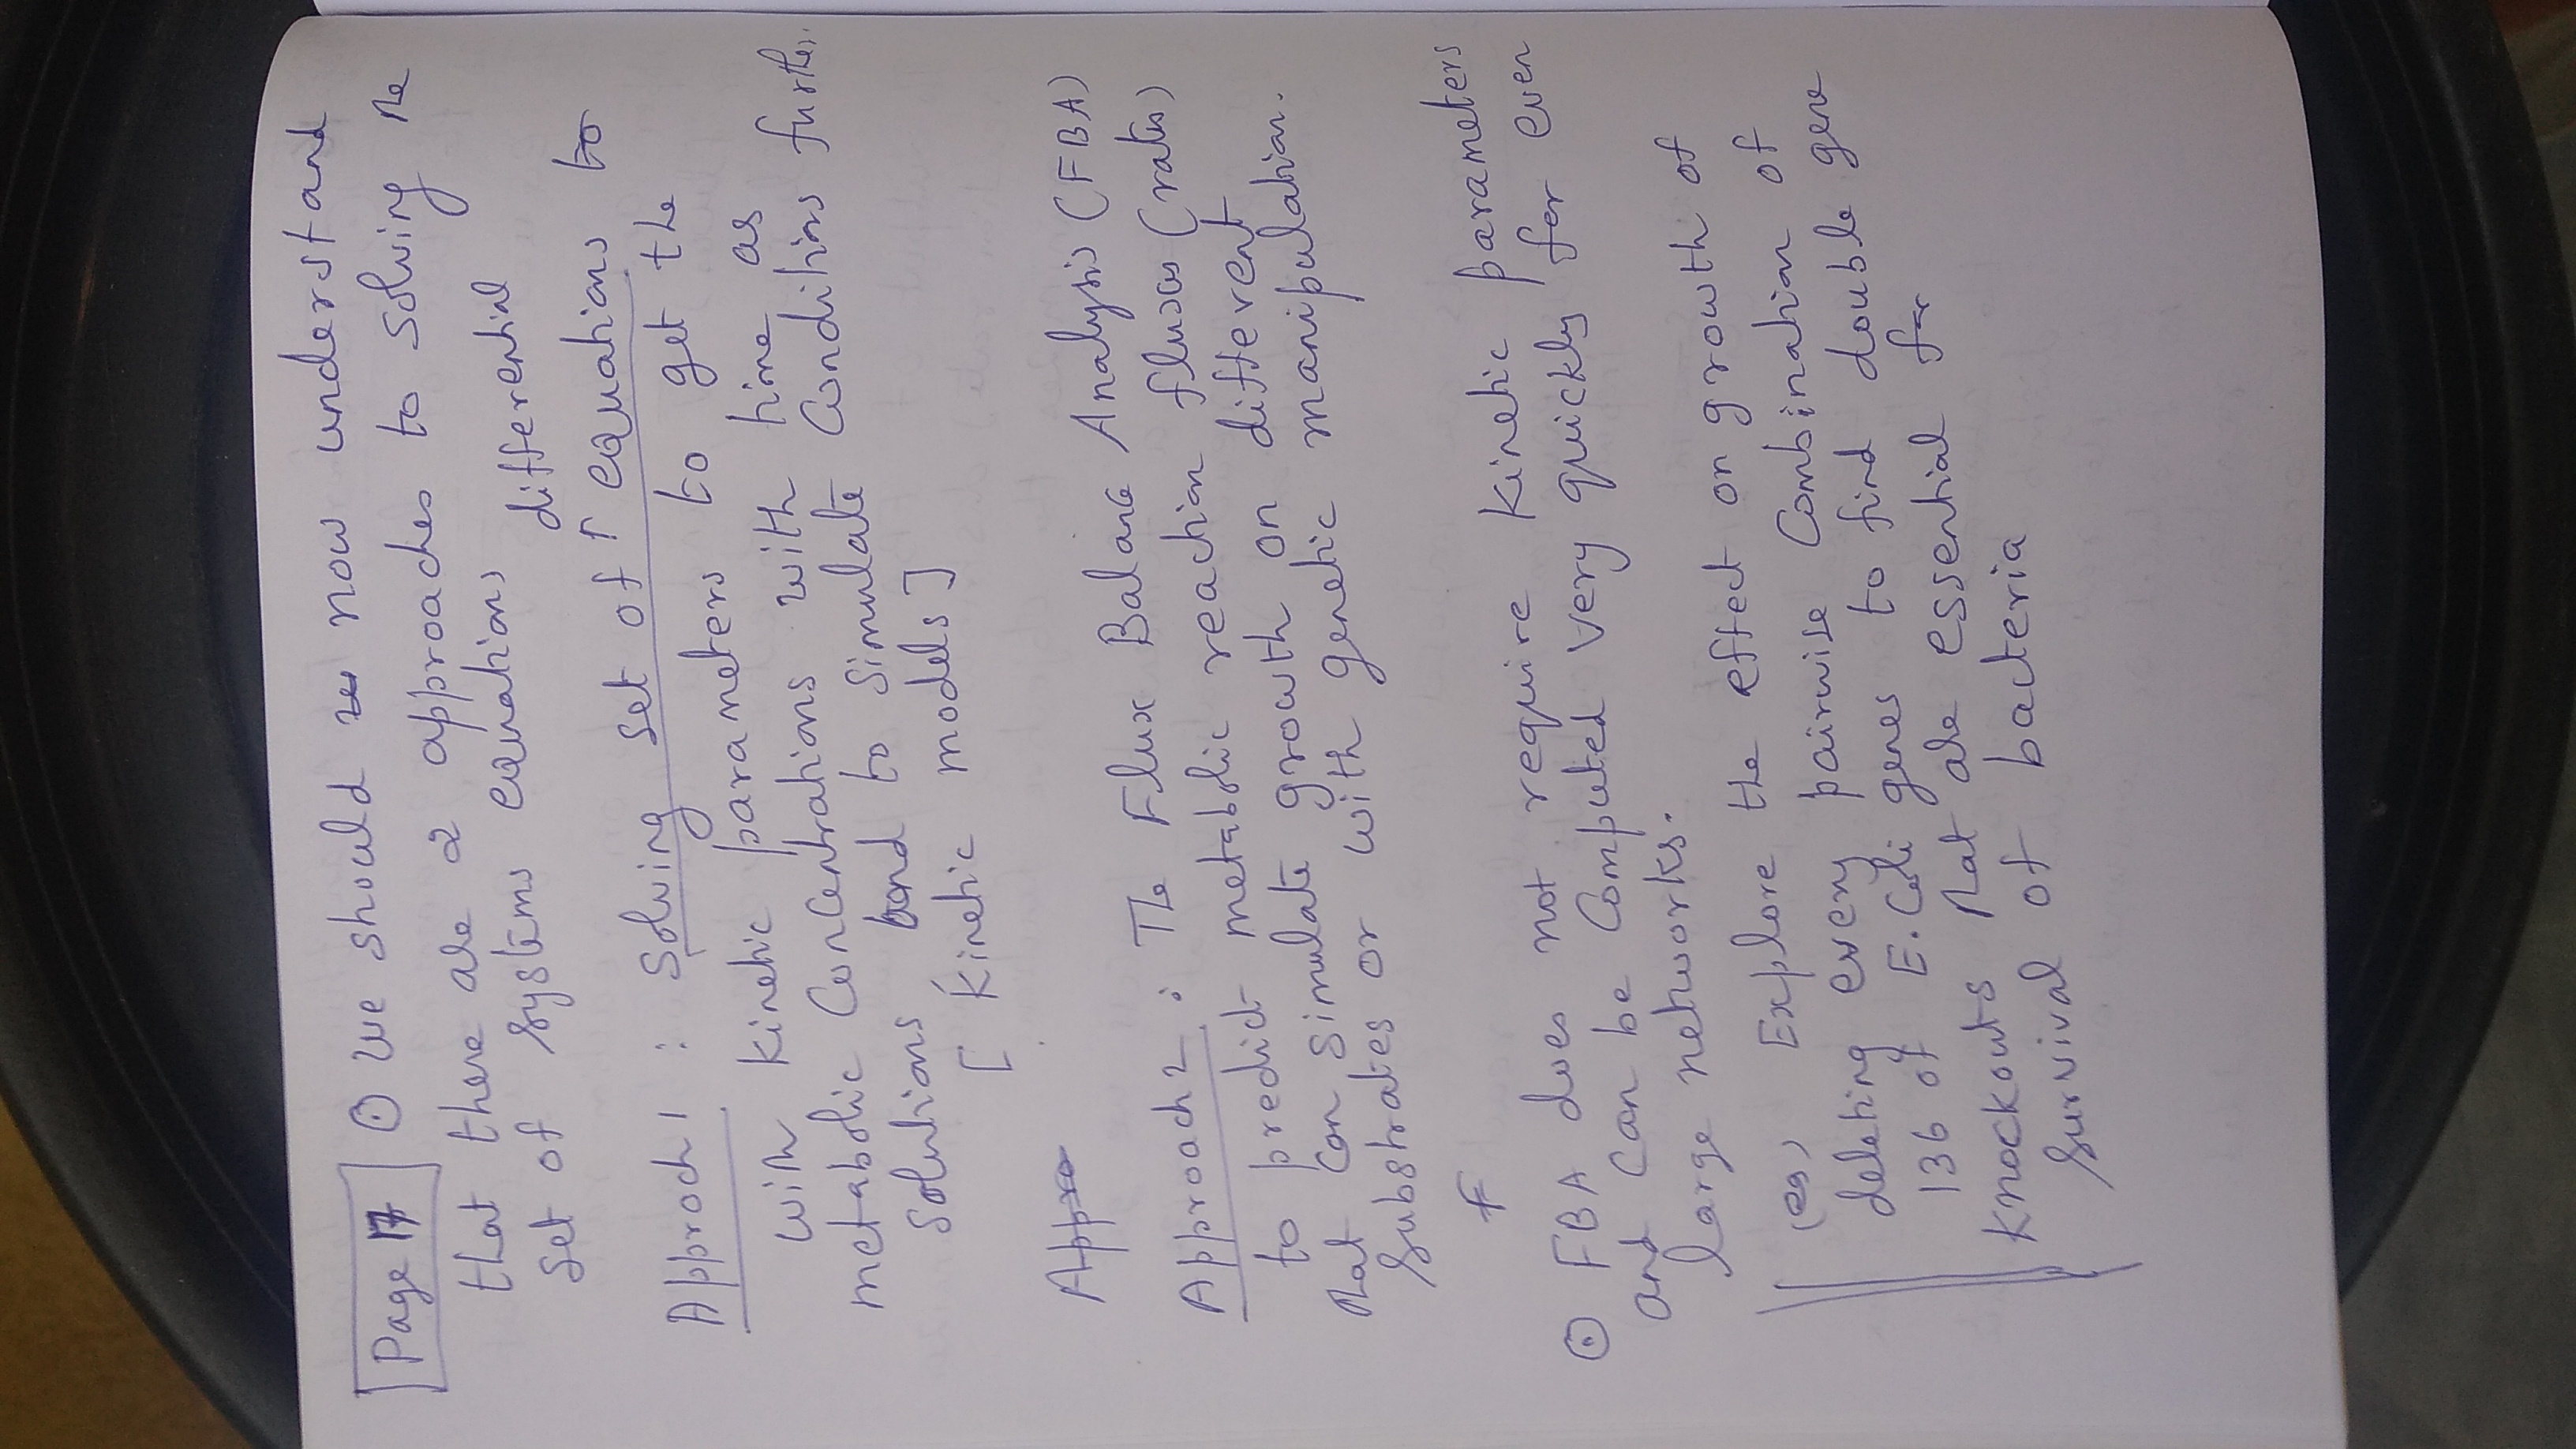 Page 17 ⊙ We should now understand
that there are 2 approaches to solving the
set of systems equations
differential
Approch 1 : Solving set of equations to
with kinetic parameters to get the
metabolic concentrations with time as
solutions, and to simulate conditions further.
[ Kinetic models ]
Appro
Approach 2 : The Flux Balance Analysis (FBA)
to predict metabolic reaction fluxes (rates)
that can simulate growth on different
substrates or with genetic manipulation.
F
⊙ FBA does not require kinetic parameters
and can be computed very quickly for even
large networks.
(eg) Explore the effect on growth of
deleting every pairwise combination of
136 of E.Coli genes to find double gene
knockouts that are essential for
survival of bacteria